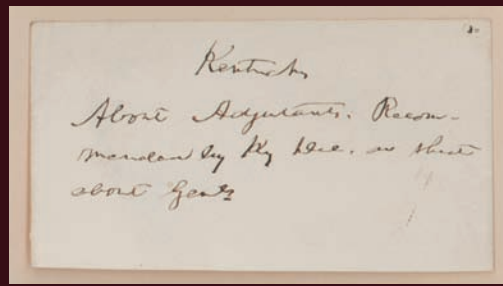 Kentucky
About Adjutants. Recom-
mended by Ky
about Genls